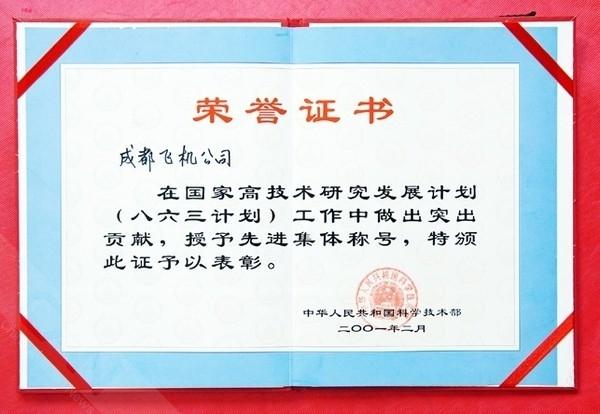 荣誉证书
成都飞机公司
在国家高技术研究发展计划
（八六三计划）工作中做出突出
贡献，授予先进集体称号，特颁
此证予以表彰。
中华人民共和国科学技术部
二〇〇一年二月